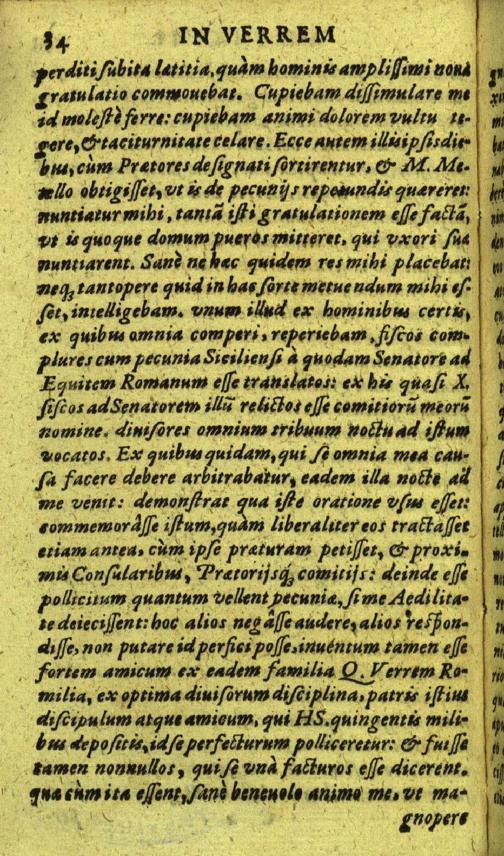 34 IN VERREM
perditi subita lætitia, quàm hominis amplissimi noua
gratulatio commouebat. Cupiebam dissimulare me
id molestè ferre: cupiebam animi dolorem vultu te-
gere, & taciturnitate celare. Ecce autem illis ipsis die-
bus, cùm Prætores designati sortirentur, & M. Me-
tello obtigisset, vt is de pecunijs repetundis quæreret:
nuntiatur mihi, tantã isti gratulationem esse factã,
vt is quoque domum pueros mitteret, qui vxori suæ
nuntiarent. Sanè ne hæc quidem res mihi placebat:
neq; tantopere quid in hac sorte metuendum mihi es-
set, intelligebam. vnum illud ex hominibus certis,
ex quibus omnia comperi, reperiebam, fiscos com-
plures cum pecunia Siciliensi à quodam Senatore ad
Equitem Romanum esse translatos: ex his quasi X.
fiscos ad Senatorem illũ relictos esse comitiorũ meorũ
nomine. diuisores omnium tribuum noctu ad istum
vocatos. Ex quibus quidam, qui se omnia mea cau-
sa facere debere arbitrabatur, eadem illa nocte ad
me venit: demonstrat qua iste oratione vsus esset:
commemorâsse istum, quàm liberaliter eos tractâsset
etiam antea, cùm ipse præturam petisset, & proxi-
mis Consularibus, Prætorijsq; comitijs: deinde esse
pollicitum quantum vellent pecuniæ, si me Aedilita-
te deiecissent: hoc alios negâsse audere, alios respon-
disse, non putare id perfici posse, inuentum tamen esse
fortem amicum ex eadem familia Q. Verrem Ro-
milia, ex optima diuisorum disciplina, patris istius
discipulum atque amicum, qui HS. quingentis mili-
bus depositis, id se perfecturum polliceretur: & fuisse
tamen nonnullos, qui se vnà facturos esse dicerent.
quæ cùm ita essent, sanè beneuolo animo me, vt ma-
gnopere